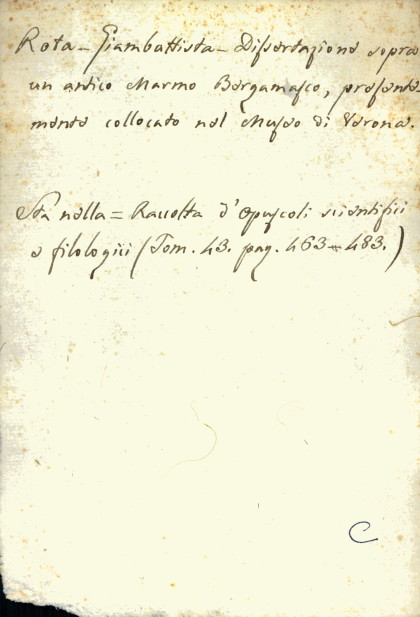 Rota - Giambattista - Dissertazione sopra
un antico Marmo Bergamasco, presente
mente collocato nel Museo di Verona.
Sta nella = Raccolta d'Opuscoli scientifici
e filologici (Tom. 43. pag. 463 - 483.)
C